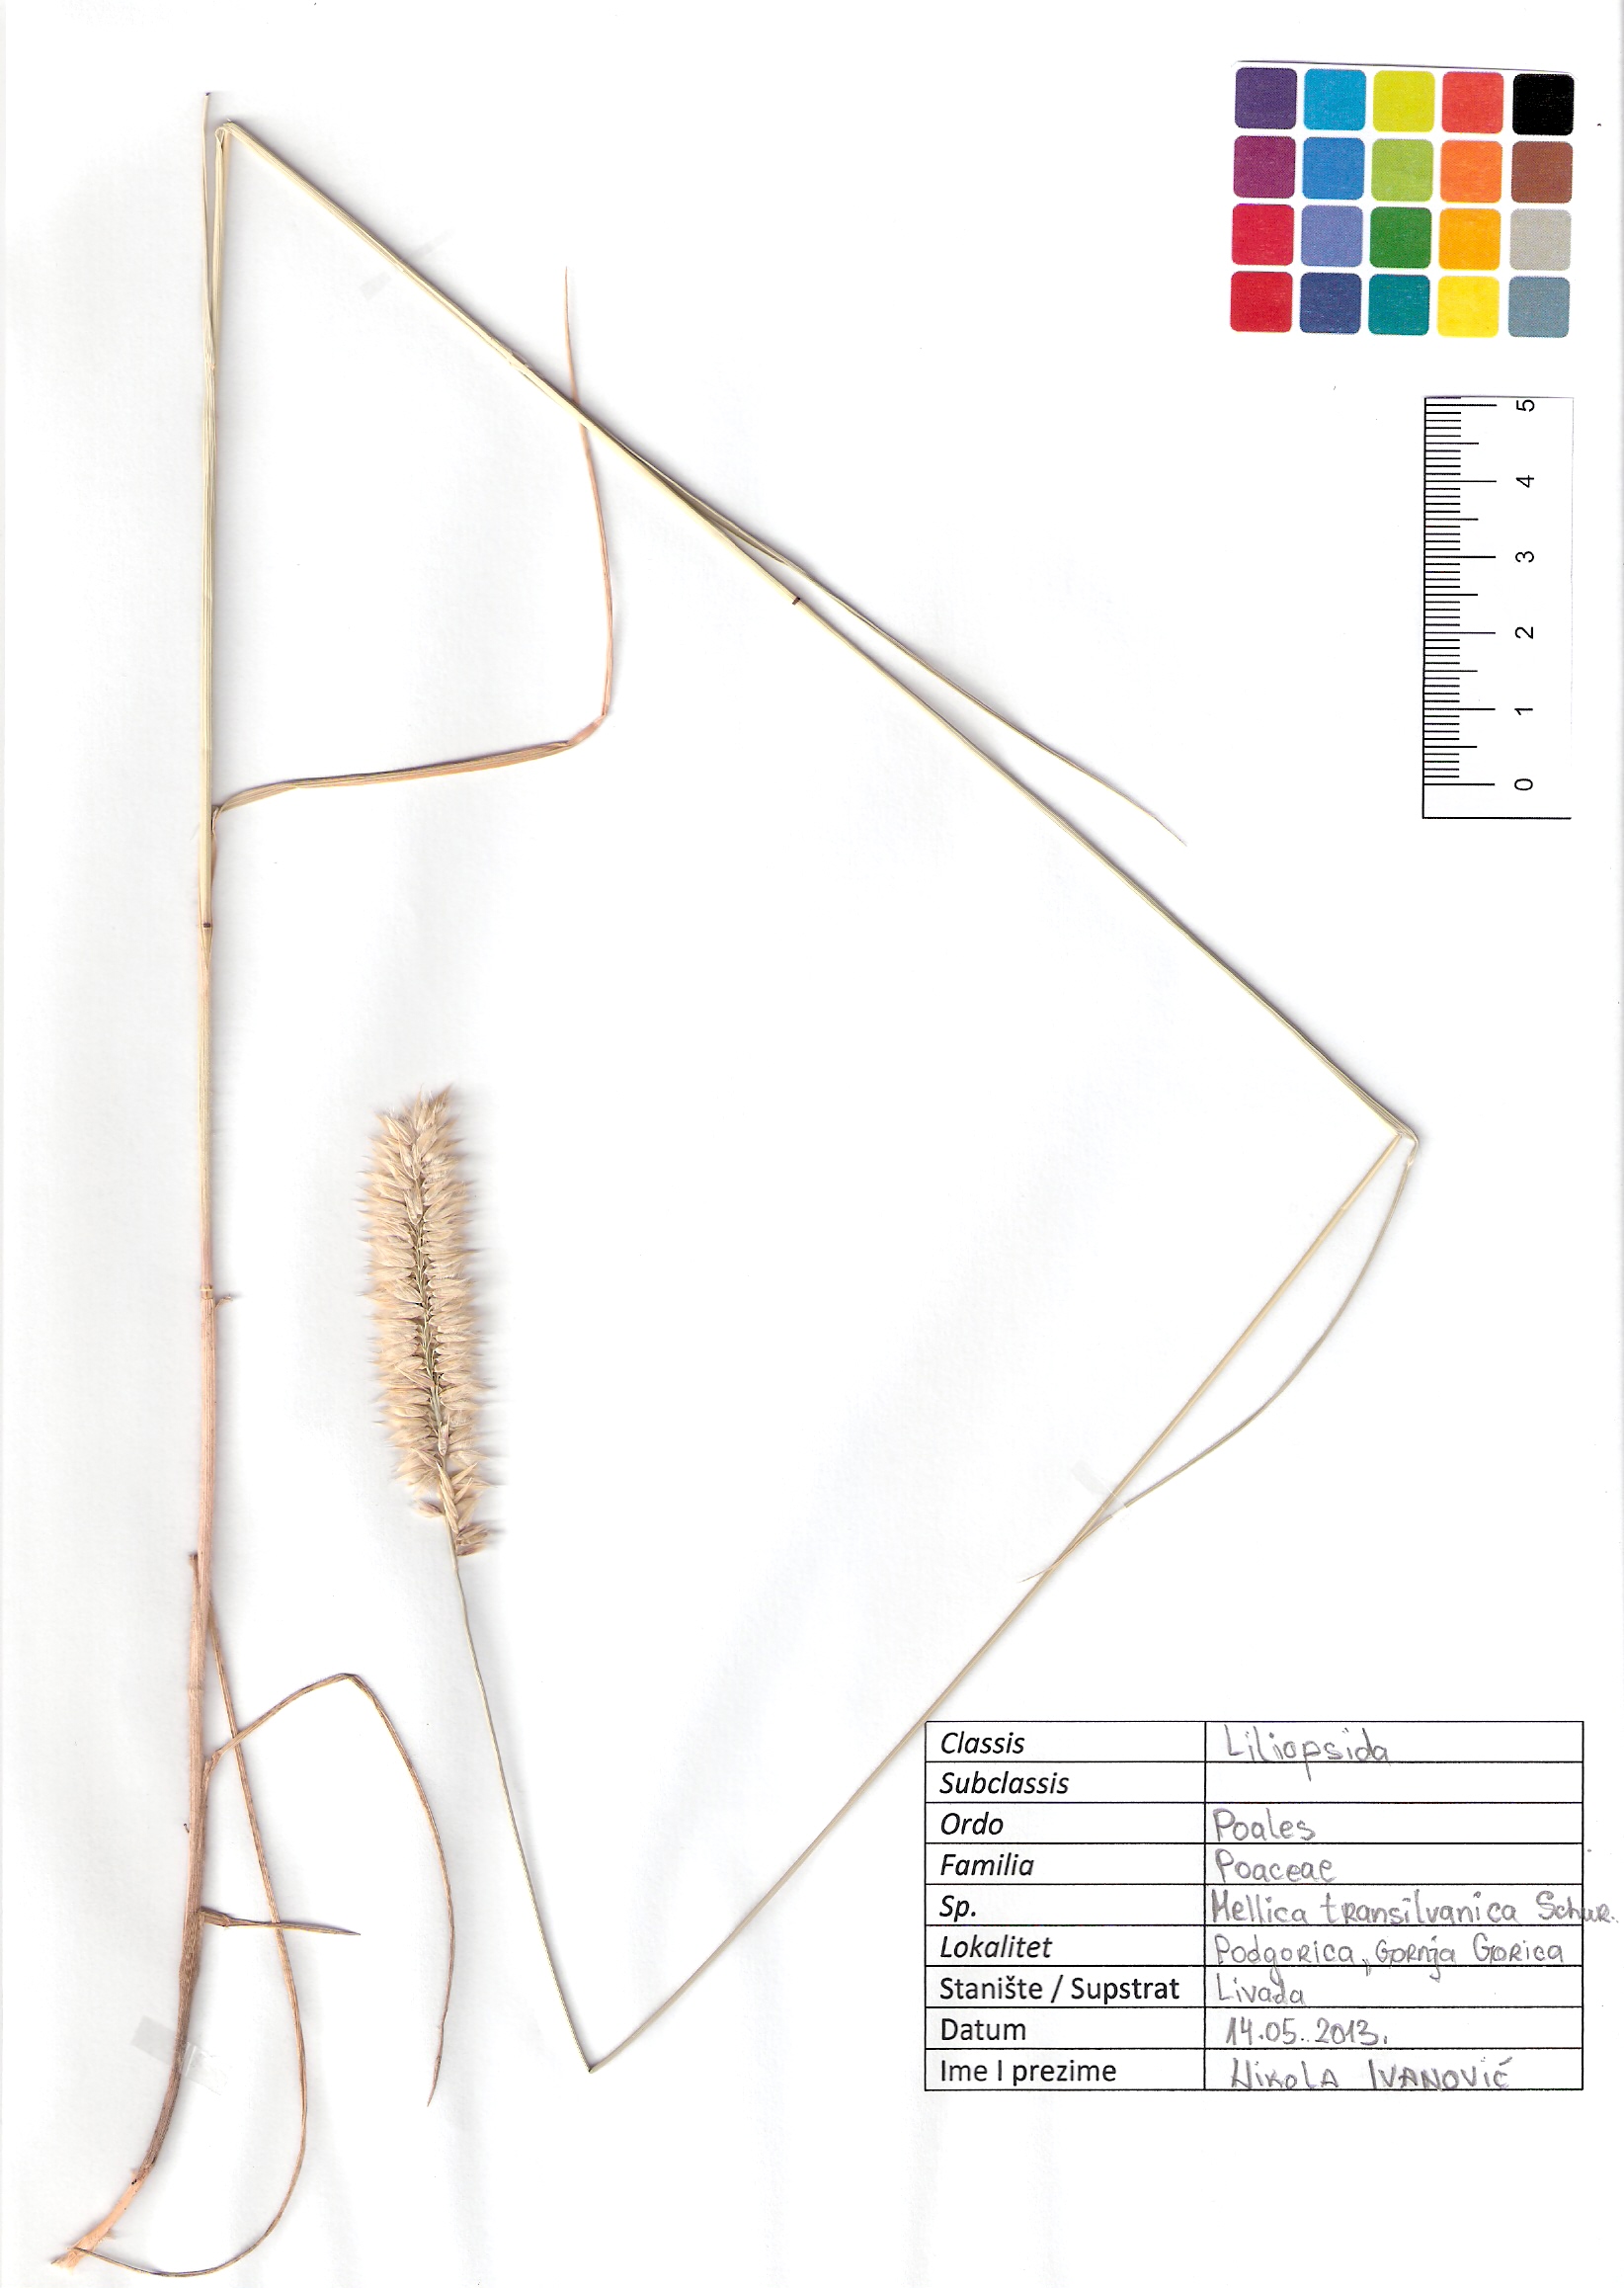 5
4
3
2
1
0
Classis Liliopsida
Subclassis
Ordo Poales
Familia Poaceae
Sp. Mellica transilvanica Schur.
Lokalitet Podgorica, Gornja Gorica
Stanište / Supstrat Livada
Datum 14.05.2013.
Ime I prezime Nikola IVANOVIĆ